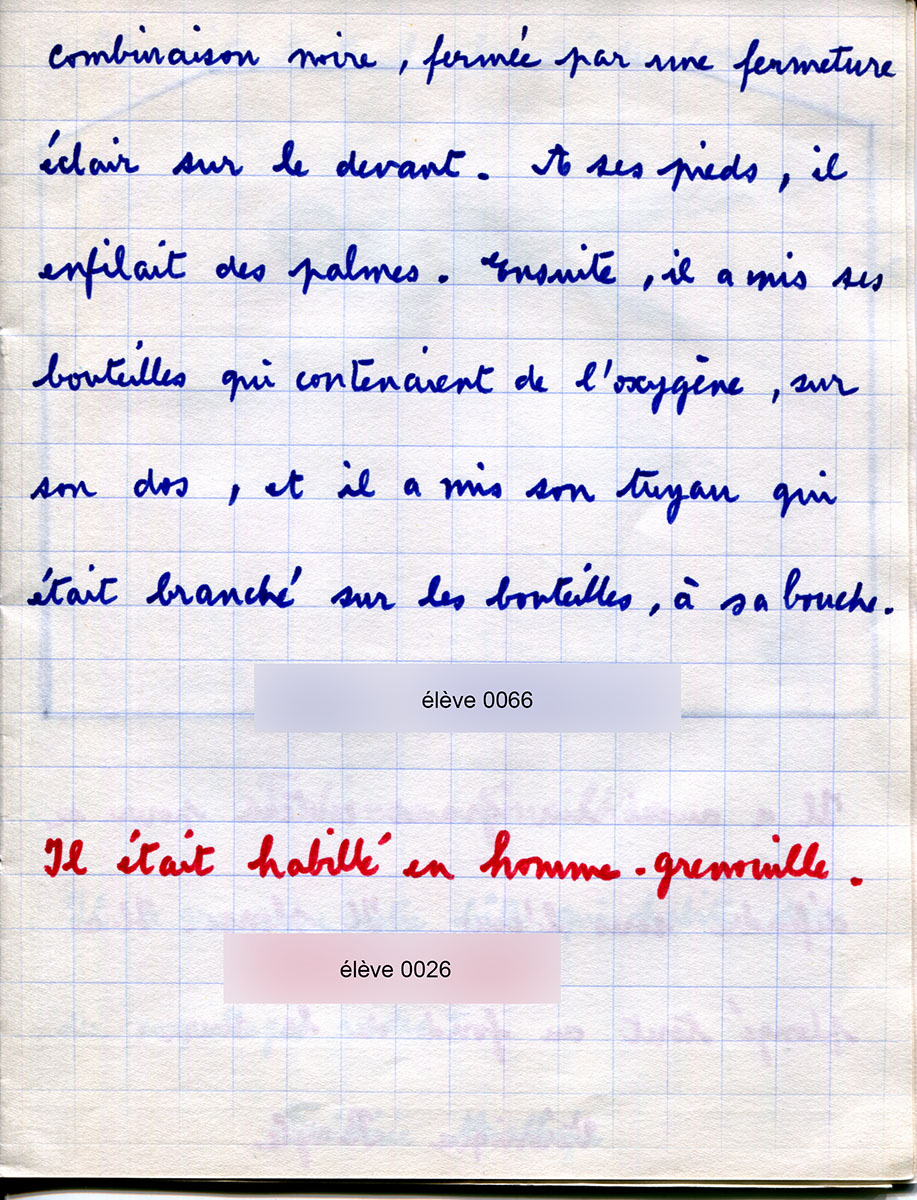 combinaison noire, fermée par une fermeture
éclair sur le devant. A ses pieds, il
enfilait des palmes. Ensuite, il a mis ses
bouteilles qui contenaient de l'oxygène, sur
son dos, et il a mis son tuyau qui
était branché sur les bouteilles, à sa bouche.
élève 0066
Il était habillé en homme-grenouille.
élève 0026